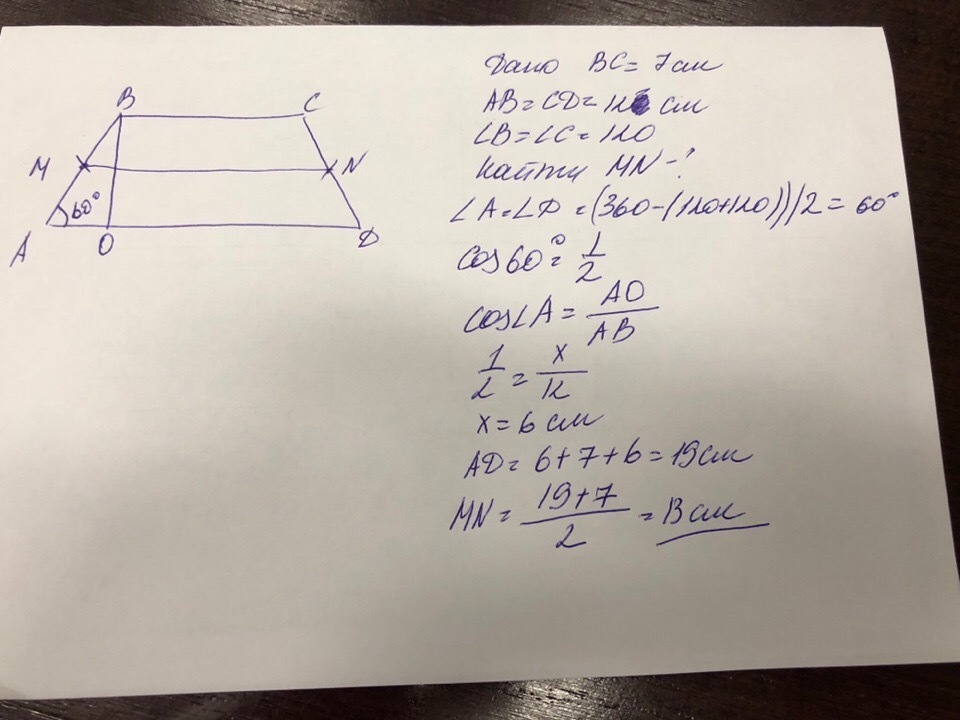 B
C
M
N
60°
A
O
D
Дано BC = 7 см
AB = CD = 12 см
∠B = ∠C = 120
Найти MN - ?
∠A = ∠D = (360 - (120+120))/2 = 60°
cos 60° = 1/2
cos∠A = AO/AB
1/2 = x/12
x = 6 см
AD = 6 + 7 + 6 = 19 см
MN = (19+7)/2 = 13 см